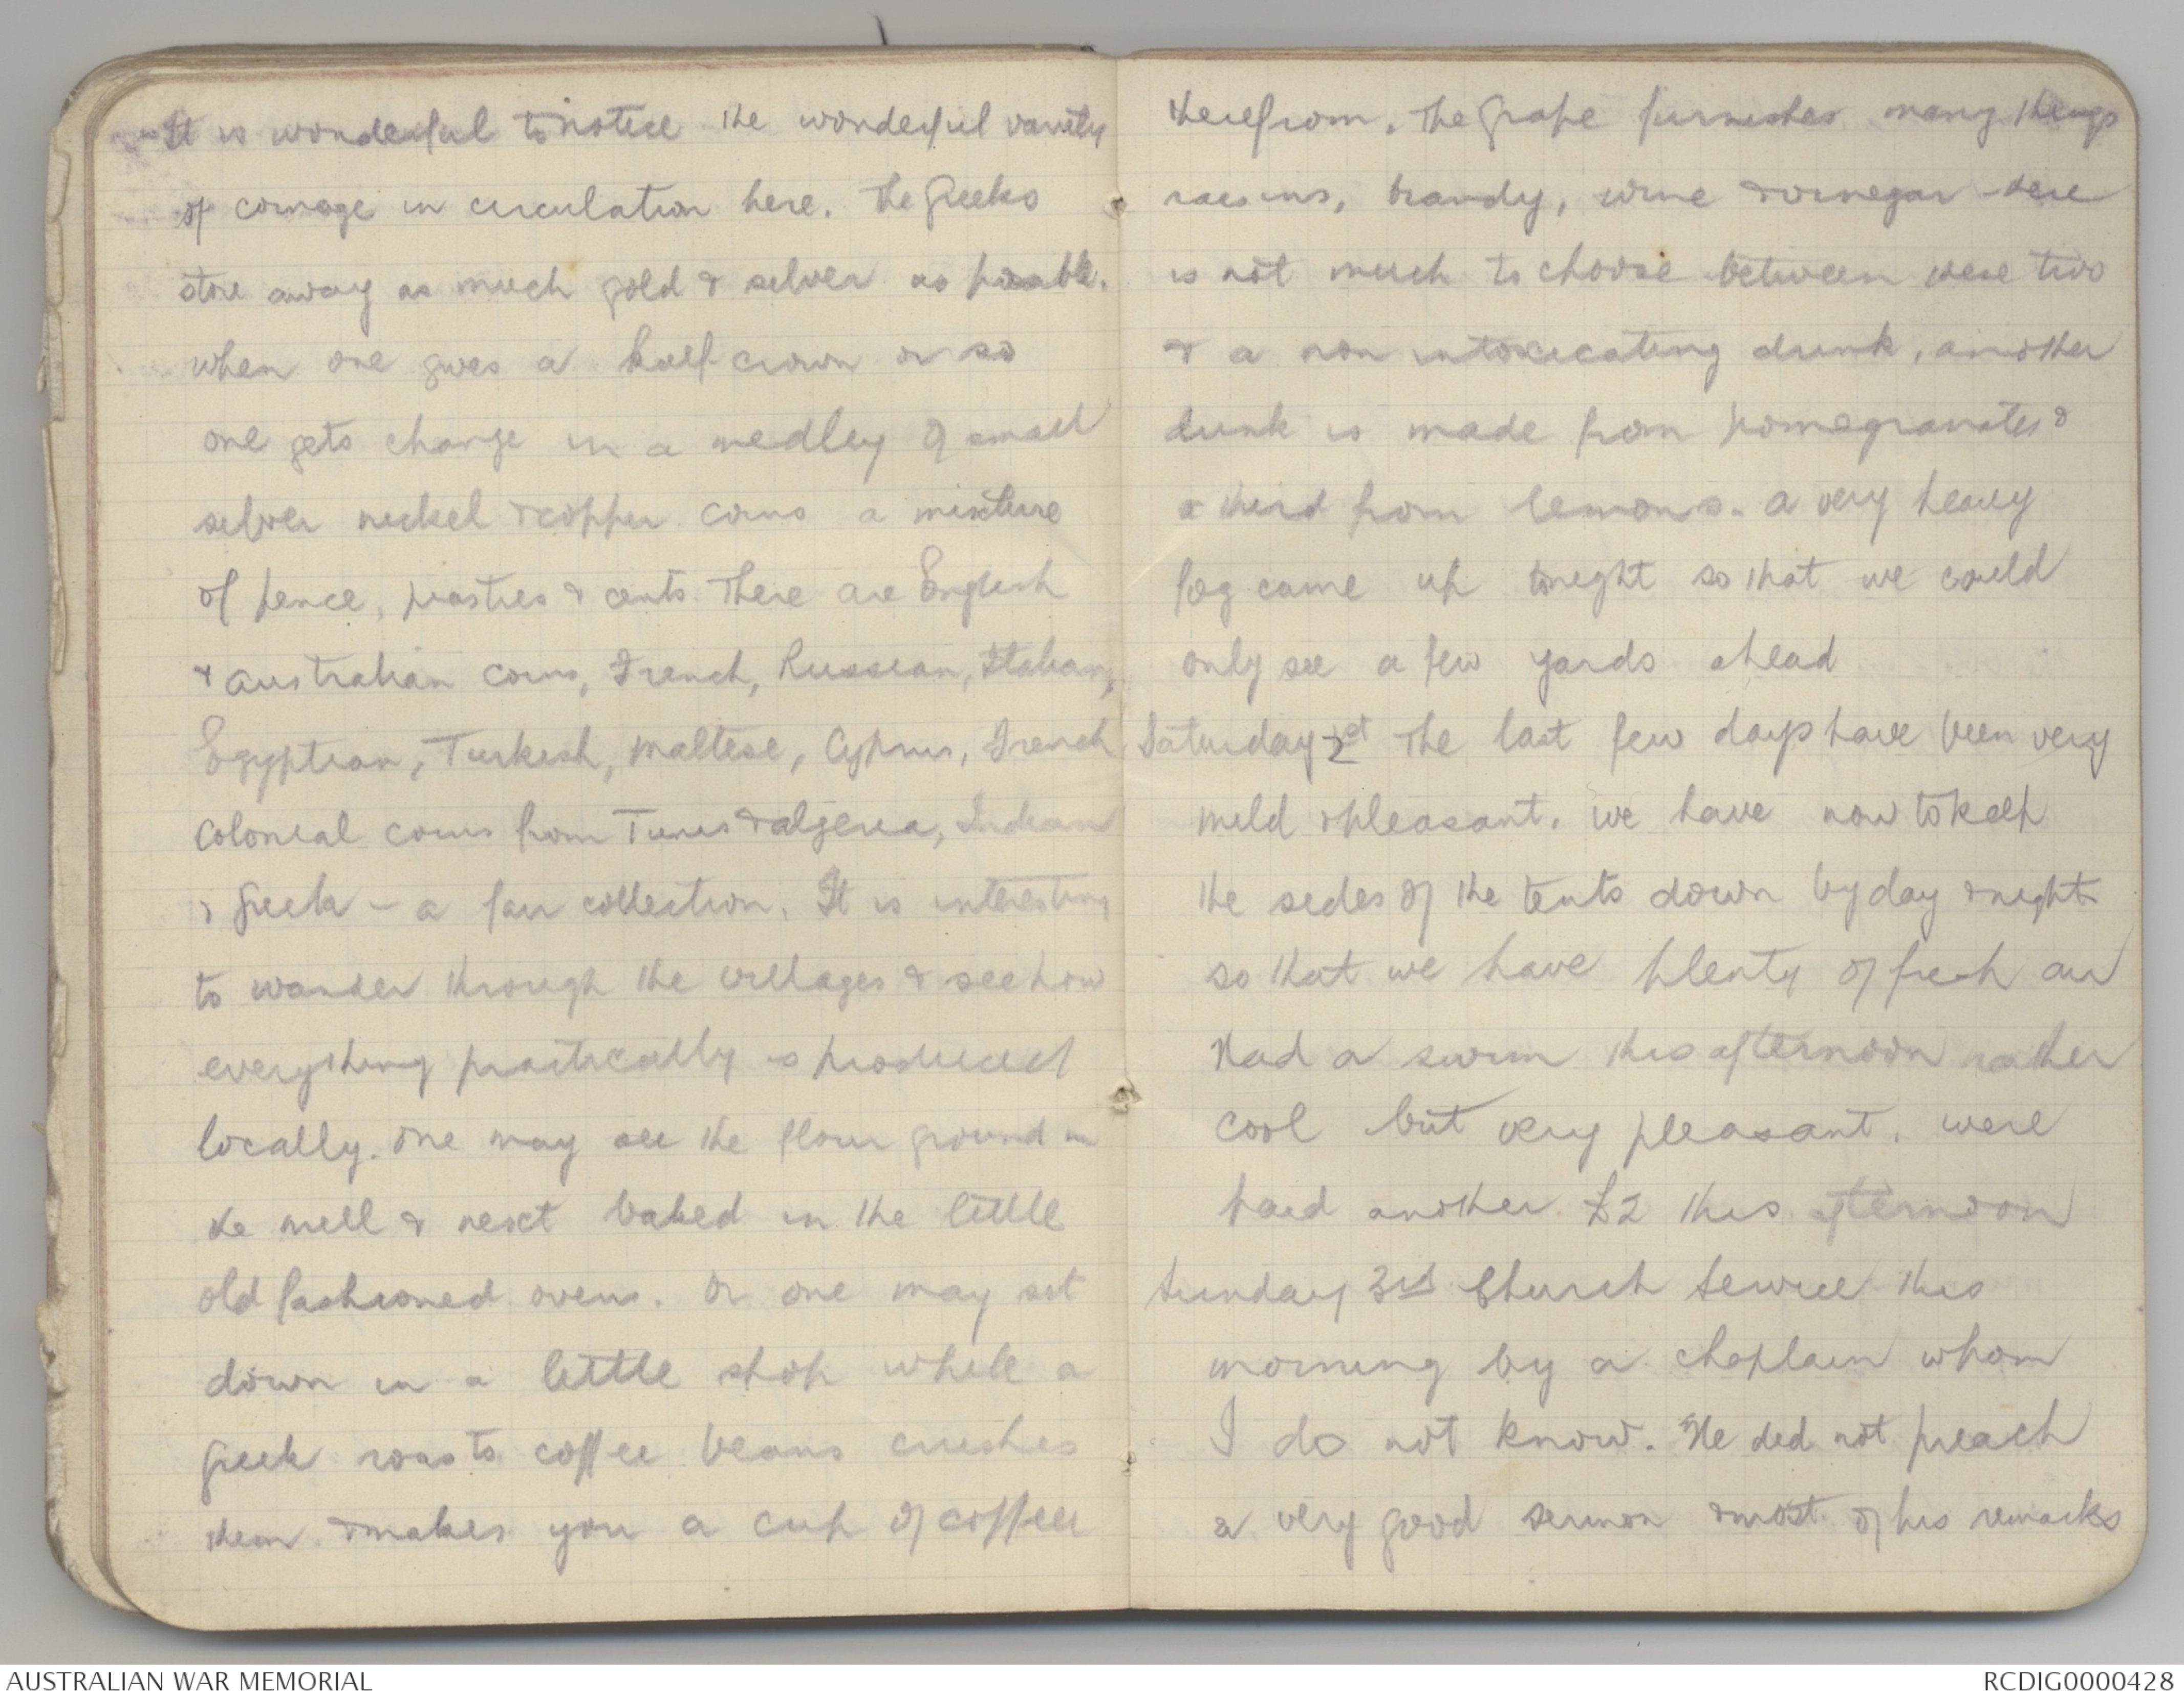 It is wonderful to notice the wonderful variety
of coinage in circulation here. The Greeks
store away as much gold & silver as possible.
when one gives a half-crown or so
one gets change in a medley of small
silver nickel & copper coins a mixture
of pence, piastres & cents. There are English
& Australian coins, French, Russian, Italian,
Egyptian, Turkish, Maltese, Cyprus, French
Colonial coins from Tunis & Algeria, Indian
& Greek - a fair collection. It is interesting
to wander through the villages & see how
everything practically is produced
locally. One may see the flour ground in
the mill & next baked in the little
old fashioned ovens. Or one may sit
down in a little shop while a
Greek roasts coffee beans crushes
them & makes you a cup of coffee
therefrom. The Grape furnishes many things
raisins, brandy, wine & vinegar - there
is not much to choose between these two
& a non intoxicating drink, another
drink is made from pomegranates &
a third from lemons. A very heavy
fog came up tonight so that we could
only see a few yards ahead
Saturday 2nd The last few days have been very
mild & pleasant. We have now to keep
the sides of the tents down by day & night
so that we have plenty of fresh air
Had a swim this afternoon rather
cool but very pleasant. Were
paid another £2 this afternoon
Sunday 3rd Church Service this
morning by a chaplain whom
I do not know. He did not preach
a very good sermon & most of his remarks
AUSTRALIAN WAR MEMORIAL
RCDIG0000428